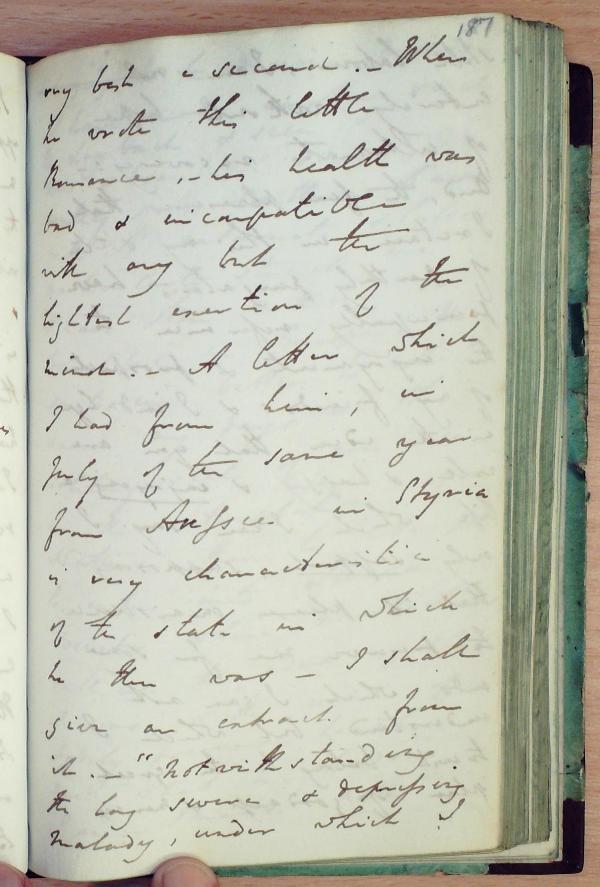 187
very best a second. – When
he wrote this little
Romance, – his health was
bad & incompatible
with any but the
lightest exertion of the
mind. – A letter which
I had from him, in
July of the same year
from Aussee in Styria
is very characteristic
of the state in which
he then was – I shall
give an extract from
it. – "Notwithstanding
the long severe & depressing
malady, under which I